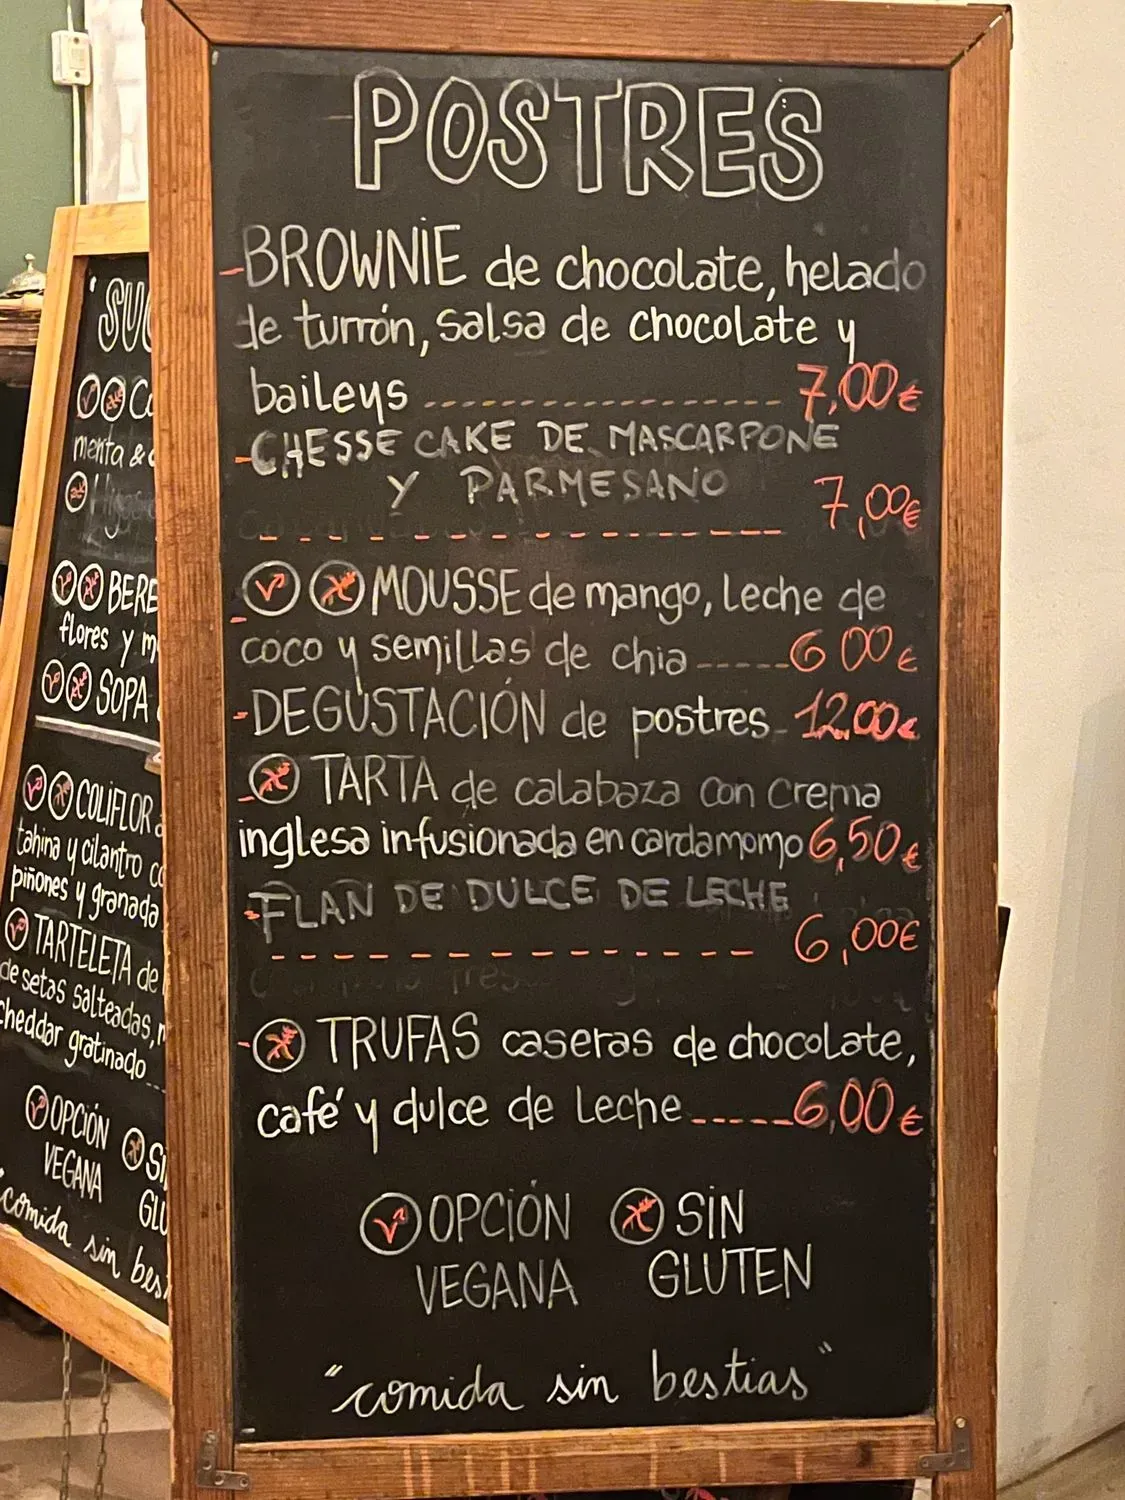 POSTRES
-BROWNIE de chocolate, helado
de turrón, salsa de chocolate y
baileys ------------------ 7,00€
-CHESSE CAKE DE MASCARPONE
Y PARMESANO
------------- 7,00€
- V MOUSSE de mango, leche de
coco y semillas de chia-----6 00€
-DEGUSTACIÓN de postres- 12.00€
- TARTA de calabaza con crema
inglesa infusionada en cardamomo 6,50€
-FLAN DE DULCE DE LECHE
------------- 6,00€
- TRUFAS caseras de chocolate,
café y dulce de leche-----6,00€
V OPCIÓN SIN
VEGANA GLUTEN
"comida sin bestias"
menta &
BERE
flores y m
SOPA
COLIFLOR
tahina y cilantro
piñones y granada
V TARTELETA de
de setas salteadas,
cheddar gratinado
V OPCIÓN
VEGANA
"comida sin bes